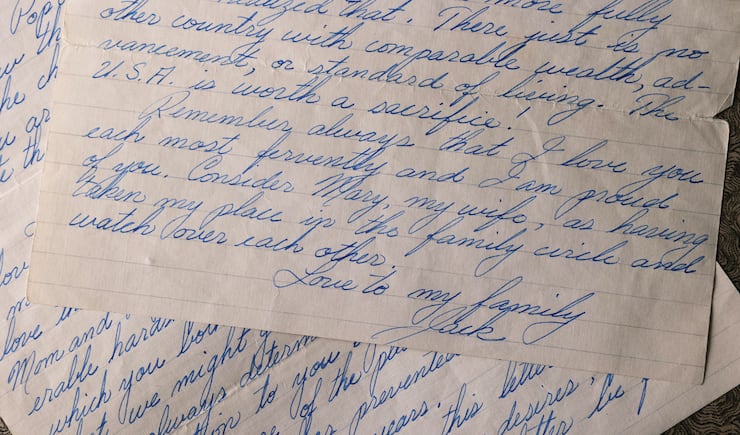 more fully
realized that. There just is no
other country with comparable wealth, ad-
vancement, or standard of living. The
U.S.A. is worth a sacrifice!
Remember always that I love you
each most fervently and I am proud
of you. Consider Mary, my wife, as having
taken my place in the family circle and
watch over each other.
Love to my family
Jack
Pop
he ch
love
Mom and
erable hards
which you both
we might
always determ
to you
of the pa
prevented
years.
this lette
desires,
be